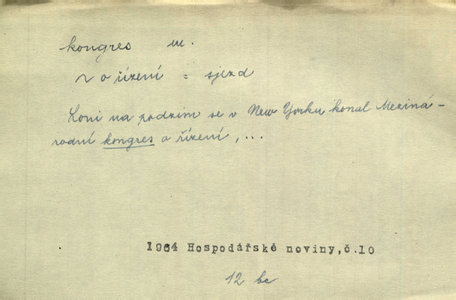 kongres m.
~ o řízení = sjezd
Loni na podzim se v New Yorku konal Meziná-
rodní kongres o řízení, ...
1964 Hospodářské noviny, č.10
12 bc